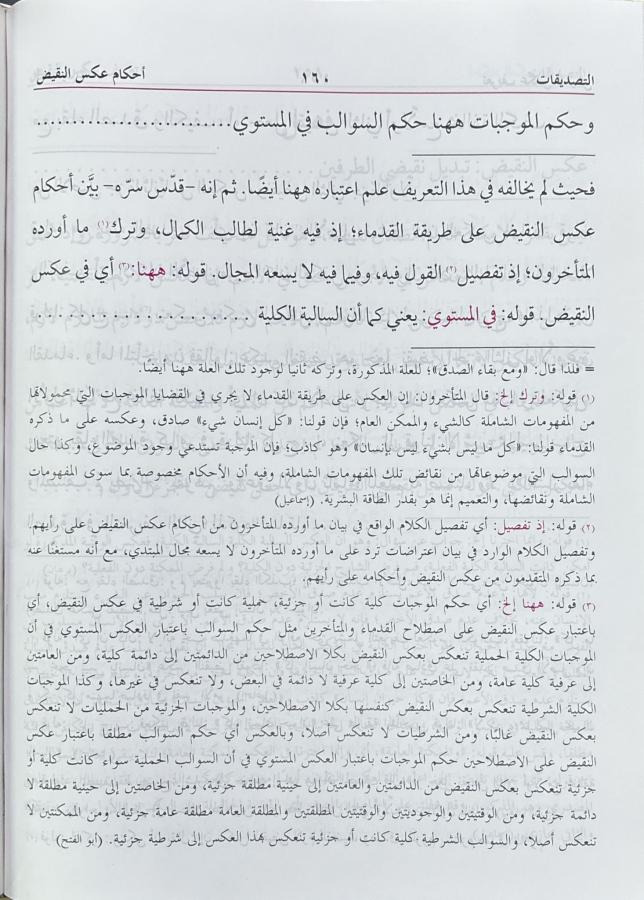 التصديقات ١٦٠ أحكام عكس النقيض
وحكم الموجبات ههنا حكم السوالب في المستوي........................
فحيث لم يخالفه في هذا التعريف علم اعتباره ههنا أيضًا. ثم إنه –قدّس سرّه– بيَّن أحكام
عكس النقيض على طريقة القدماء؛ إذ فيه غنية لطالب الكمال، وترك(١) ما أورده
المتأخرون؛ إذ تفصيل(٢) القول فيه، وفيما فيه لا يسعه المجال. قوله: ههنا:(٣) أي في عكس
النقيض. قوله: في المستوي: يعني كما أن السالبة الكلية ....................
= فلذا قال: «ومع بقاء الصدق»؛ للعلة المذكورة، وتركه ثانيا لوجود تلك العلة ههنا أيضًا.
(١) قوله: وترك إلخ: قال المتأخرون: إن العكس على طريقة القدماء لا يجري في القضايا الموجبات التي محمولاتها
من المفهومات الشاملة كالشيء والممكن العام؛ فإن قولنا: «كل إنسان شيء» صادق، وعكسه على ما ذكره
القدماء قولنا: «كل ما ليس بشيء ليس بإنسان» وهو كاذب؛ فإن الموجبة تستدعي وجود الموضوع، وكذا حال
السوالب التي موضوعاتها من نقائض تلك المفهومات الشاملة، وفيه أن الأحكام مخصوصة بما سوى المفهومات
الشاملة ونقائضها، والتعميم إنما هو بقدر الطاقة البشرية. (إسماعيل)
(٢) قوله: إذ تفصيل: أي تفصيل الكلام الواقع في بيان ما أورده المتأخرون من أحكام عكس النقيض على رأيهم.
وتفصيل الكلام الوارد في بيان اعتراضات ترد على ما أورده المتأخرون لا يسعه مجال المبتدي، مع أنه مستغنًا عنه
بما ذكره المتقدمون من عكس النقيض وأحكامه على رأيهم.
(٣) قوله: ههنا إلخ: أي حكم الموجبات كلية كانت أو جزئية، حملية كانت أو شرطية في عكس النقيض، أي
باعتبار عكس النقيض على اصطلاح القدماء والمتأخرين مثل حكم السوالب باعتبار العكس المستوي في أن
الموجبات الكلية الحملية تنعكس بعكس النقيض بكلا الاصطلاحين من الدائمتين إلى دائمة كلية، ومن العامتين
إلى عرفية كلية عامة، ومن الخاصتين إلى كلية عرفية لا دائمة في البعض، ولا تنعكس في غيرها، وكذا الموجبات
الكلية الشرطية تنعكس بعكس النقيض كنفسها بكلا الاصطلاحين، والموجبات الجزئية من الحمليات لا تنعكس
بعكس النقيض غالبًا، ومن الشرطيات لا تنعكس أصلا، وبالعكس أي حكم السوالب مطلقا باعتبار عكس
النقيض على الاصطلاحين حكم الموجبات باعتبار العكس المستوي في أن السوالب الحملية سواء كانت كلية أو
جزئية تنعكس بعكس النقيض من الدائمتين والعامتين إلى حينية مطلقة جزئية، ومن الخاصتين إلى حينية مطلقة لا
دائمة جزئية، ومن الوقتيتين والوجوديتين والوقتيتين المطلقتين والمطلقة العامة مطلقة عامة جزئية، ومن الممكنتين لا
تنعكس أصلا، والسوالب الشرطية كلية كانت أو جزئية تنعكس بهذا العكس إلى شرطية جزئية. (أبو الفتح)